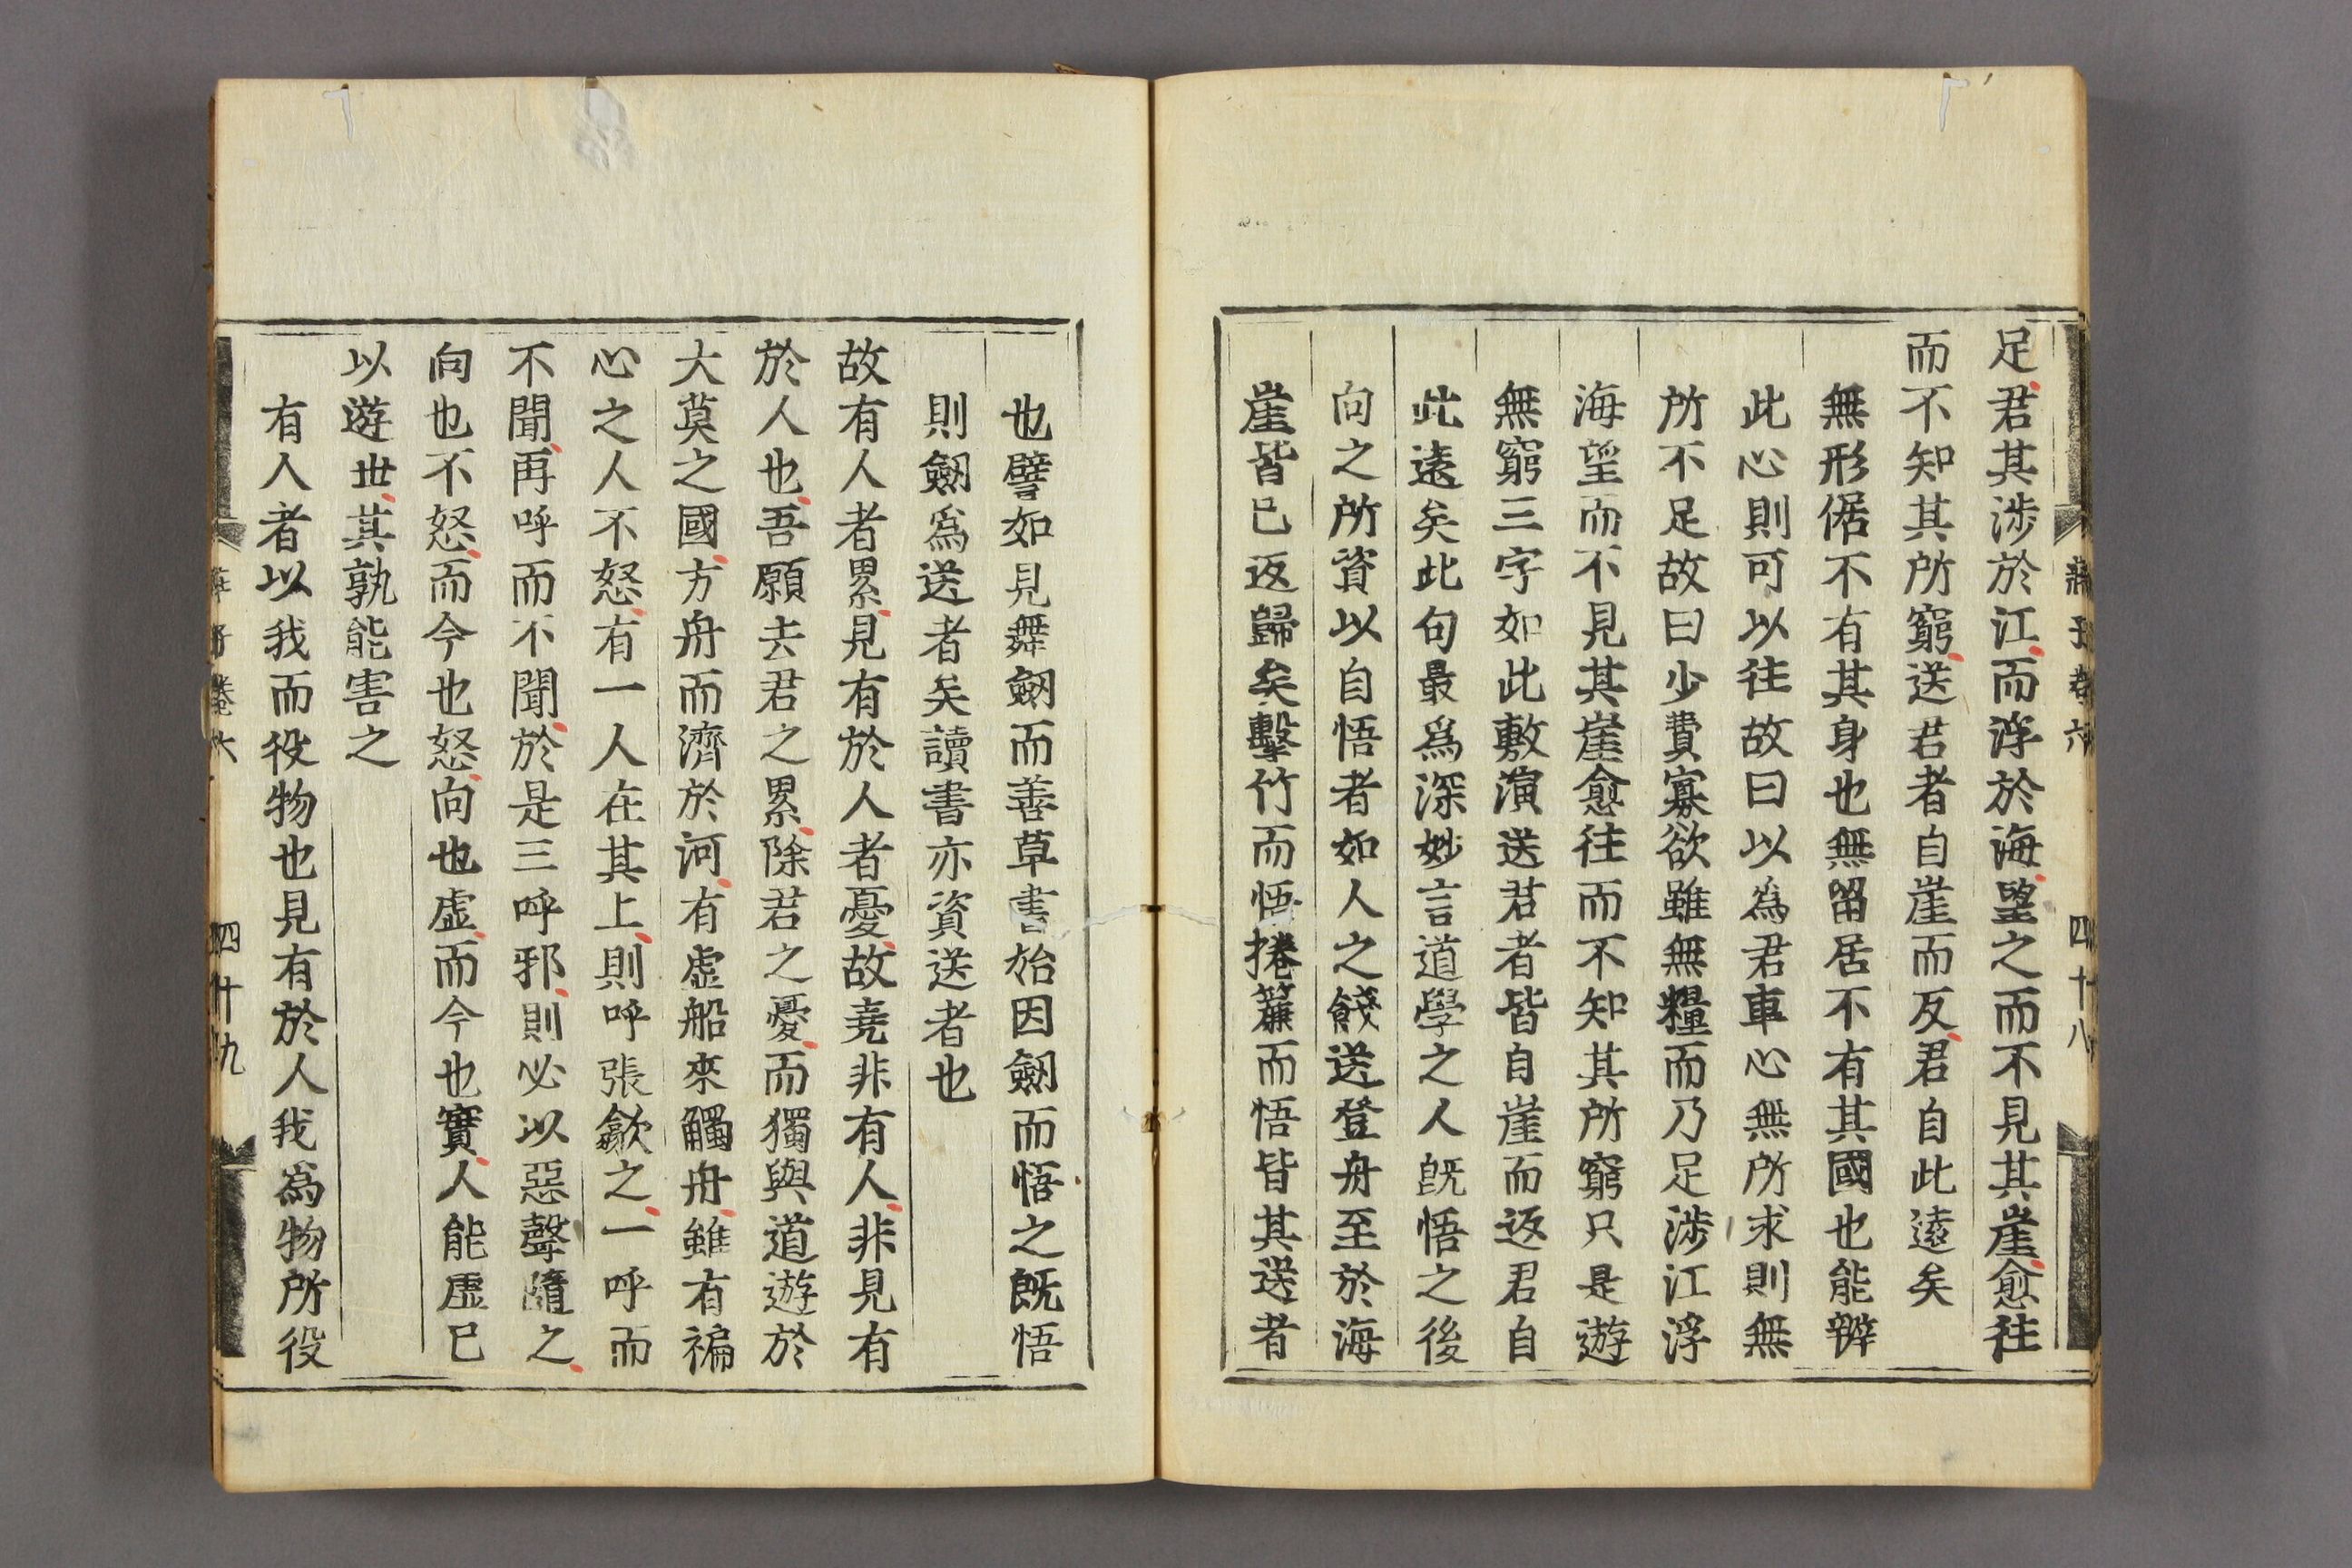 莊子卷六 四十八
足君其涉於江而浮於海望之而不見其崖愈往
而不知其所窮送君者自崖而反君自此遠矣
無形倨不有其身也無留居不有其國也能辦
此心則可以往故曰以為君車心無所求則無
所不足故曰少費寡欲雖無糧而乃足涉江浮
海望而不見其崖愈往而不知其所窮只是遊
無窮三字如此敷演送君者皆自崖而返君自
此遠矣此句最爲深妙言道學之人旣悟之後
向之所資以自悟者如人之餞送登舟至於海
崖皆已返歸矣擊竹而悟捲簾而悟皆其送者
也譬如見舞劒而善草書始因劒而悟之旣悟
則劒爲送者矣讀書亦資送者也
故有人者累見有於人者憂故堯非有人非見有
於人也吾願去君之累除君之憂而獨與道遊於
大莫之國方舟而濟於河有虛船來觸舟雖有褊
心之人不怒有一人在其上則呼張歙之一呼而
不聞再呼而不聞於是三呼邪則必以惡聲隨之
向也不怒而今也怒向也虛而今也實人能虛已
以遊世其孰能害之
有人者以我而役物也見有於人我爲物所役
莊子卷六 四十九